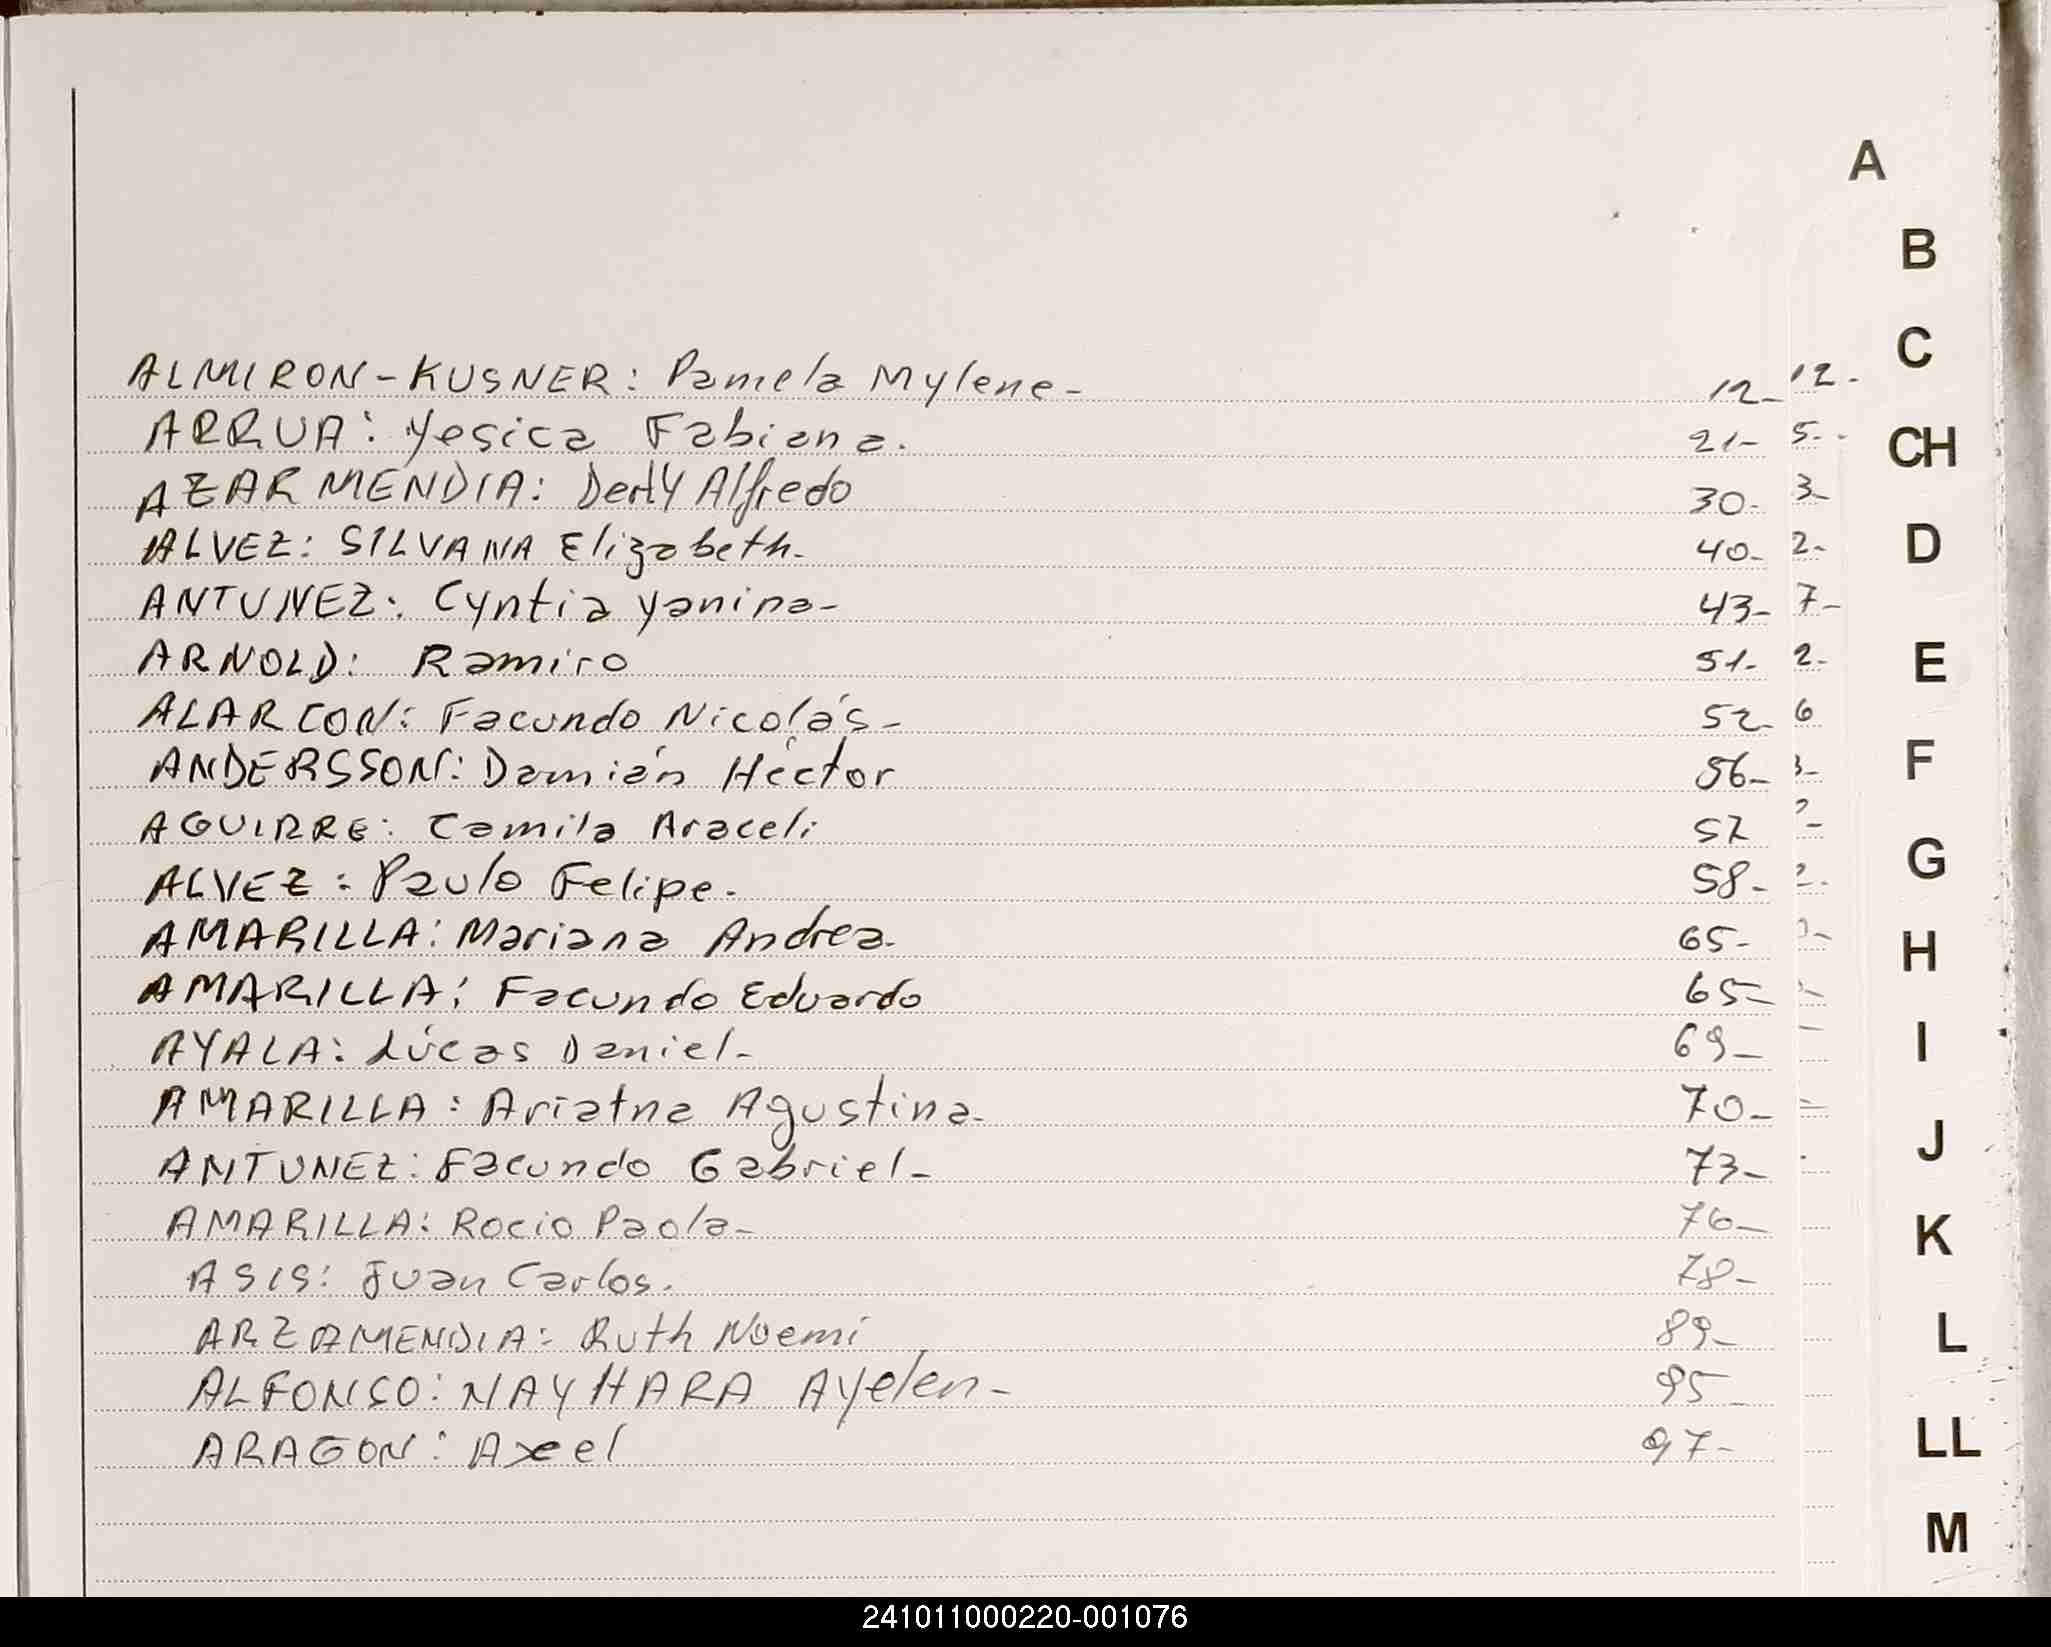 A
B
C
ALMIRON-KUSNER: Pamela Mylene- 12- 12-
ARRUA: Yesica Fabiana. 21- 5-
CH
AZARMENDIA: Derly Alfredo 30- 3-
ALVEZ: SILVANA Elizabeth- 40- 2-
D
ANTUNEZ: Cyntia Yanina- 43- 7-
ARNOLD: Ramiro 51- 2-
E
ALARCON: Facundo Nicolás- 52- 6
ANDERSSON: Damián Héctor 56- 3-
F
AGUIRRE: Camila Araceli 57
G
ALVEZ: Paulo Felipe- 58- 2-
AMARILLA: Mariana Andrea- 65-
H
AMARILLA: Facundo Eduardo 65-
AYALA: Lúcas Daniel- 69-
I
AMARILLA: Ariatna Agustina- 70-
J
ANTUNEZ: Facundo Gabriel- 73-
AMARILLA: Rocio Paola- 76-
K
ASIS: Juan Carlos. 78-
ARZAMENDIA: Ruth Noemi 89-
L
ALFONSO: NAYHARA Ayelen- 95-
ARAGON: Axel 97-
LL
M
241011000220-001076